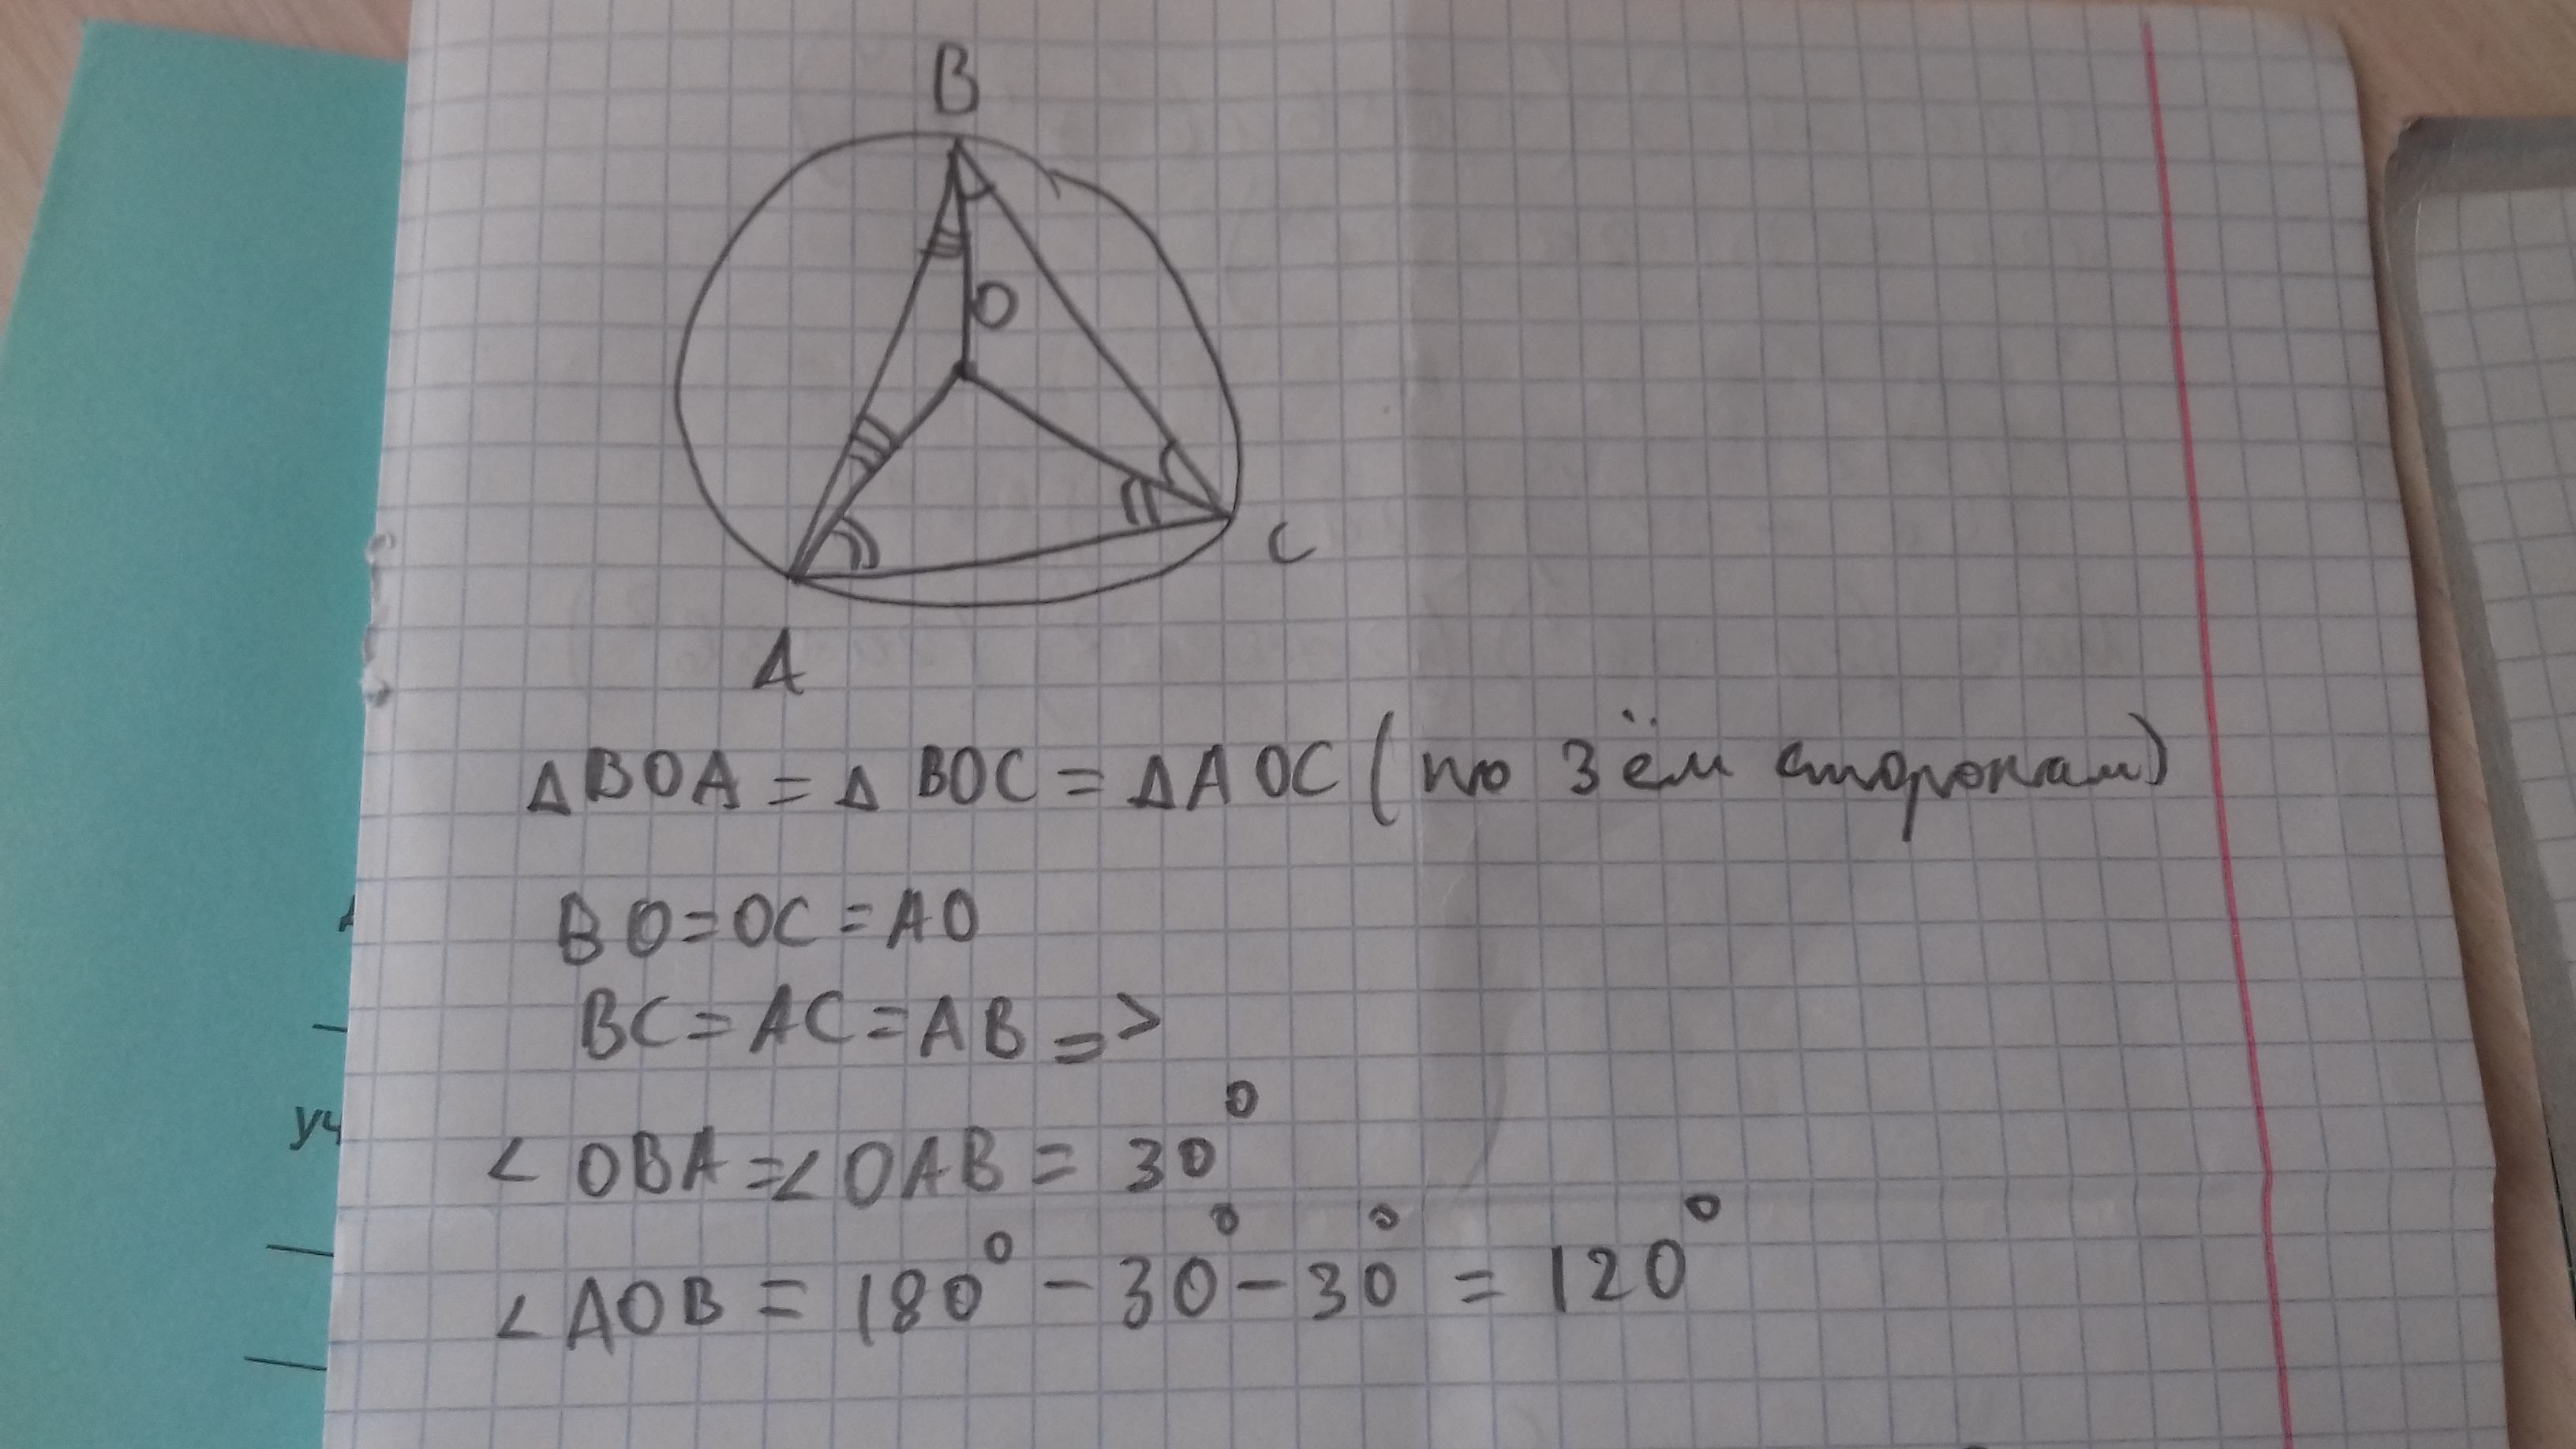 B
O
C
A
∆ BOA = ∆ BOC = ∆ AOC (по 3ём сторонам)
BO = OC = AO
BC = AC = AB =>
< OBA = < OAB = 30°
< AOB = 180° - 30° - 30° = 120°
уч